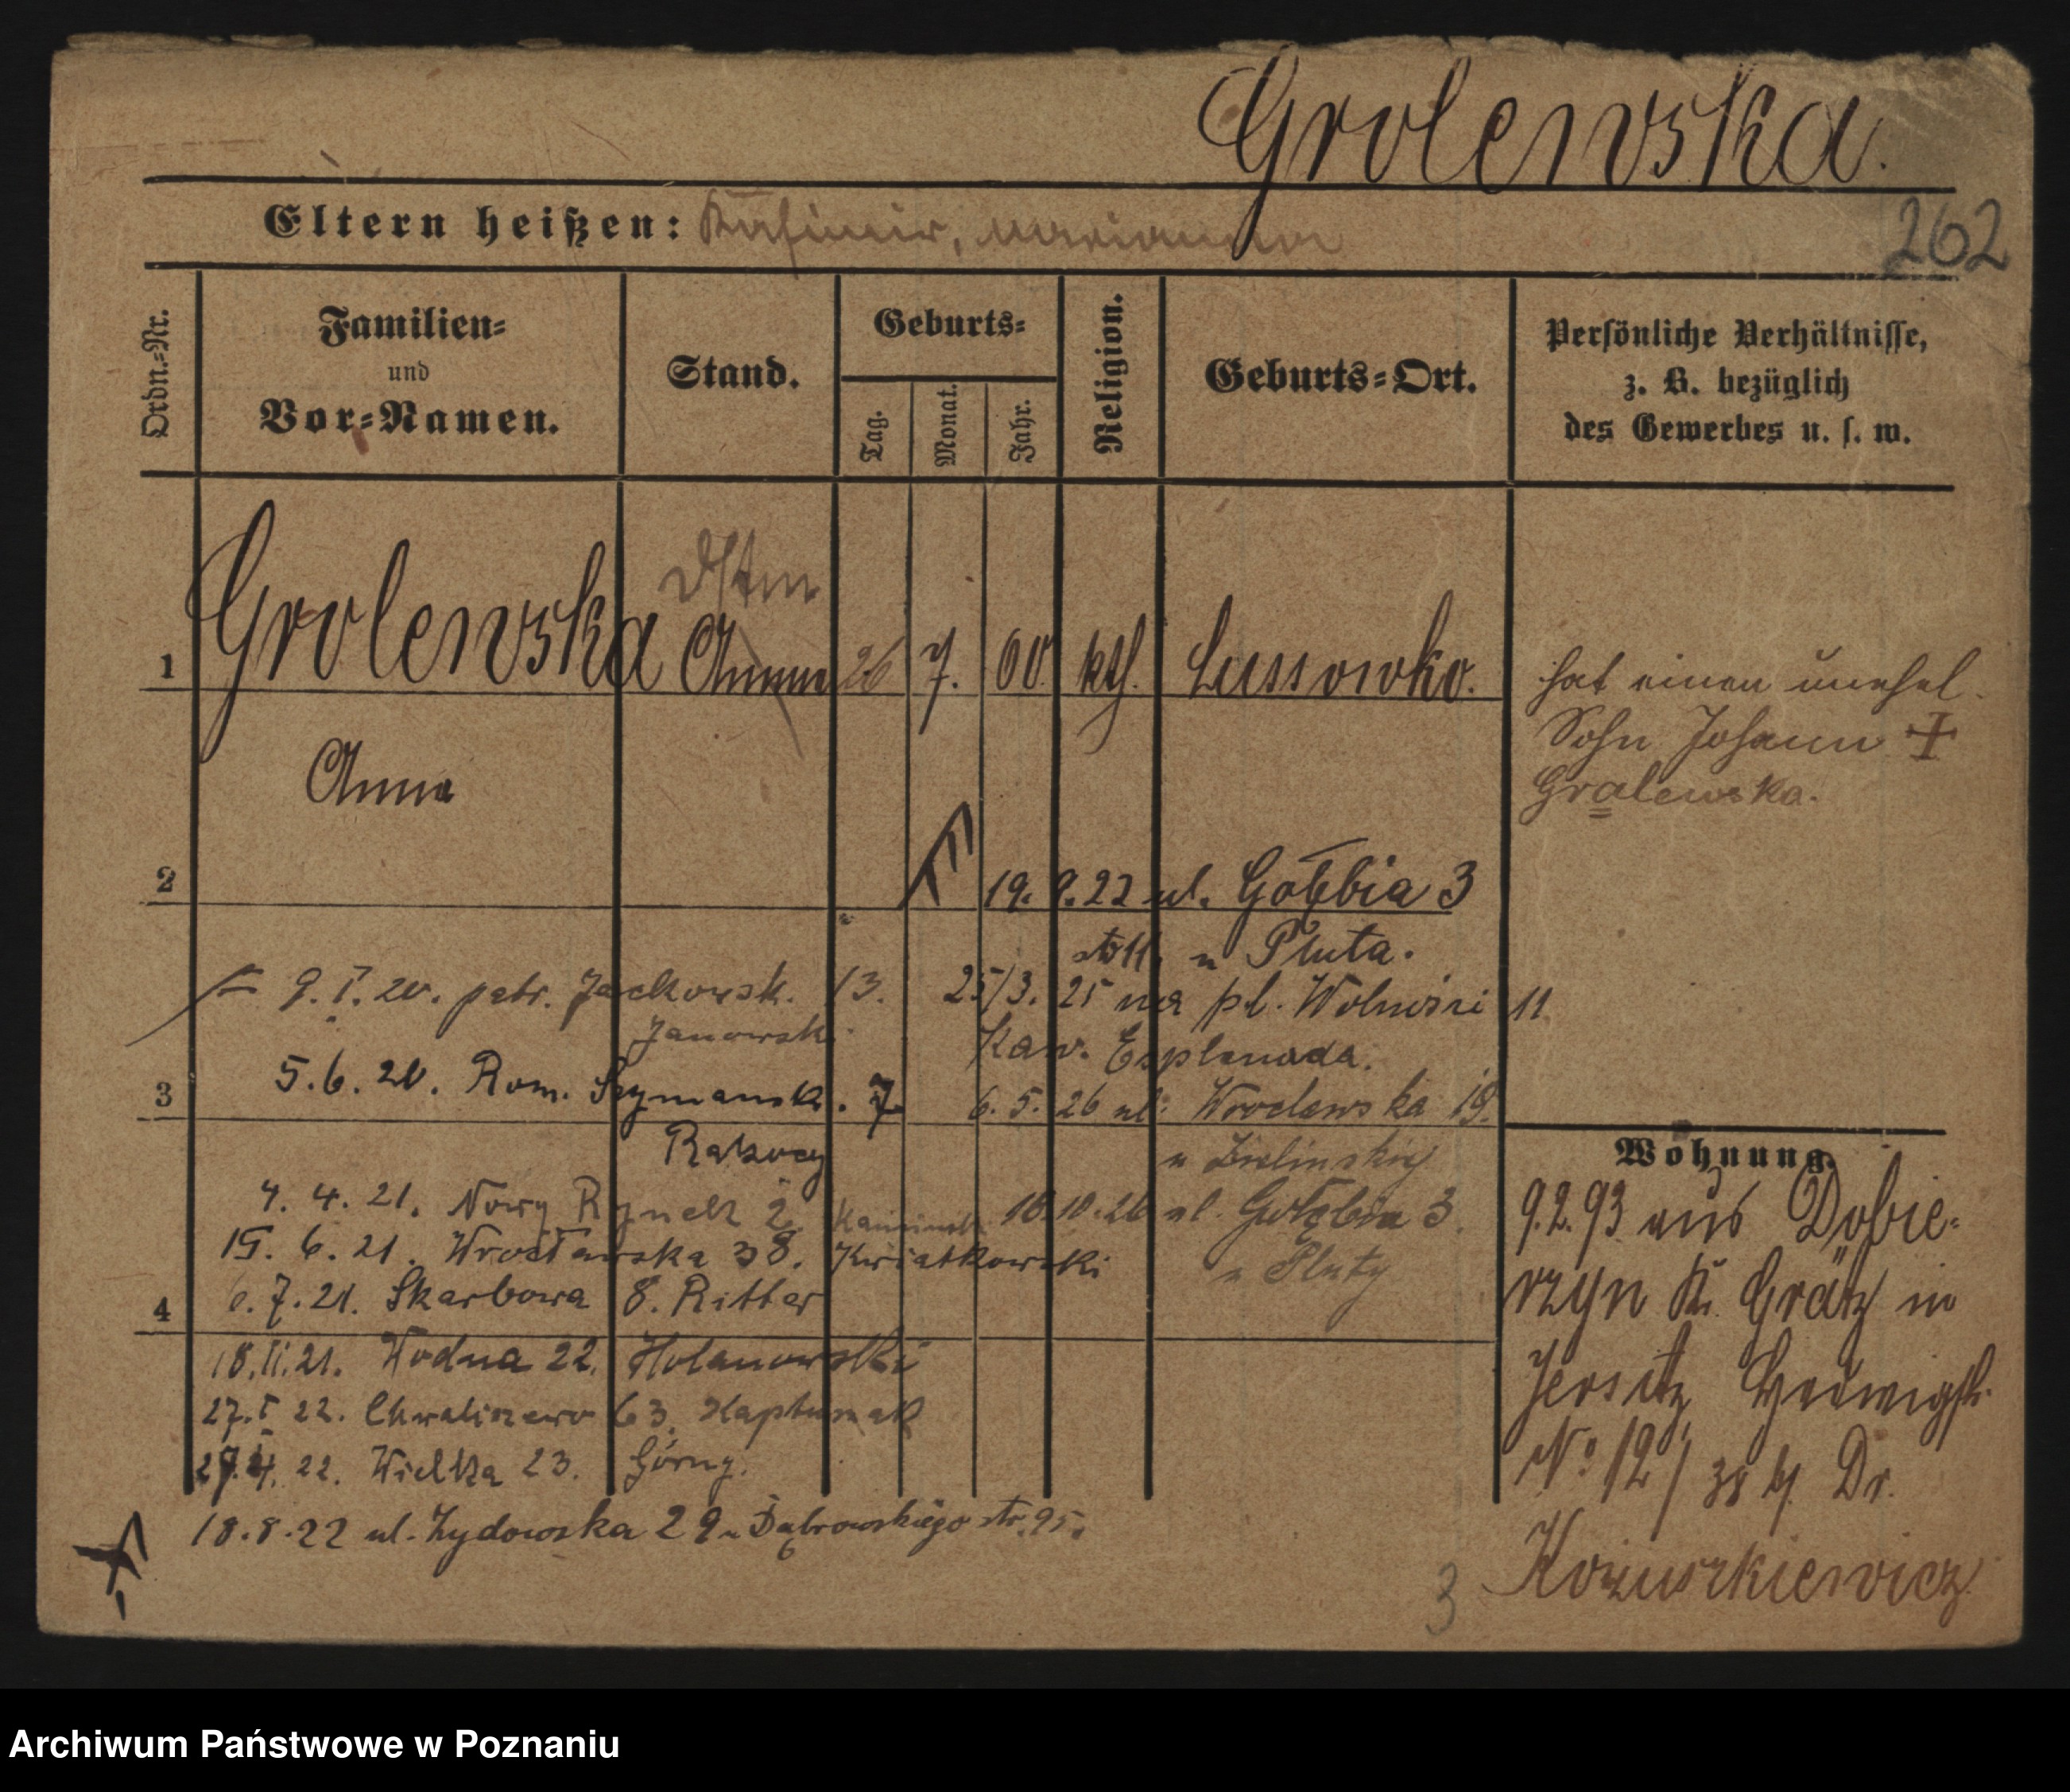 Grolewska.
Eltern heißen: Kasimir, Marianna
262
Ordn.-Nr.
Familien- und Vor-Namen.
Stand.
Geburts-
Tag.
Monat.
Jahr.
Religion.
Geburts-Ort.
Persönliche Verhältnisse,
z. B. bezüglich
des Gewerbes u. s. w.
1 Grolewska Anna 26 7. 60. kth. Lussowko.
Anna
hat einen unehel.
Sohn Johann +
Gralewska.
2
19. 9. 22 ul. Gołębia 3
u Pluta.
9. I. 20. patr. Jackowsk. 13.
25/3. 25 na pl. Wolności 11
Janowsk.
Kaw. Esplanada.
3 5. 6. 20. Rom. Szymansk. 7
6. 5. 26 ul. Wrocławska 19.
Rakocy
u Zielinskiej
4. 4. 21. Nowy Rynek 2.
18. 10. 26 ul. Gołębia 3.
15. 6. 21. Wrocławska 38. Kwiatkowski
u Pluty
4 6. 7. 21. Skarbowa 8. Ritter
18. II. 21. Wodna 22. Holanowski
27. I 22. Chwaliszewo 63. Kapturzak
22. Wielka 23. Górny.
18. 8. 22 ul. Żydowska 29 u Dąbrowskiego str. 95.
Wohnung.
9. 2. 93 aus Dobie-
rzyn Kr. Grätz in
Jersitz, Hedwigstr.
No 12 / Dr.
Kozuszkiewicz
3
Archiwum Państwowe w Poznaniu